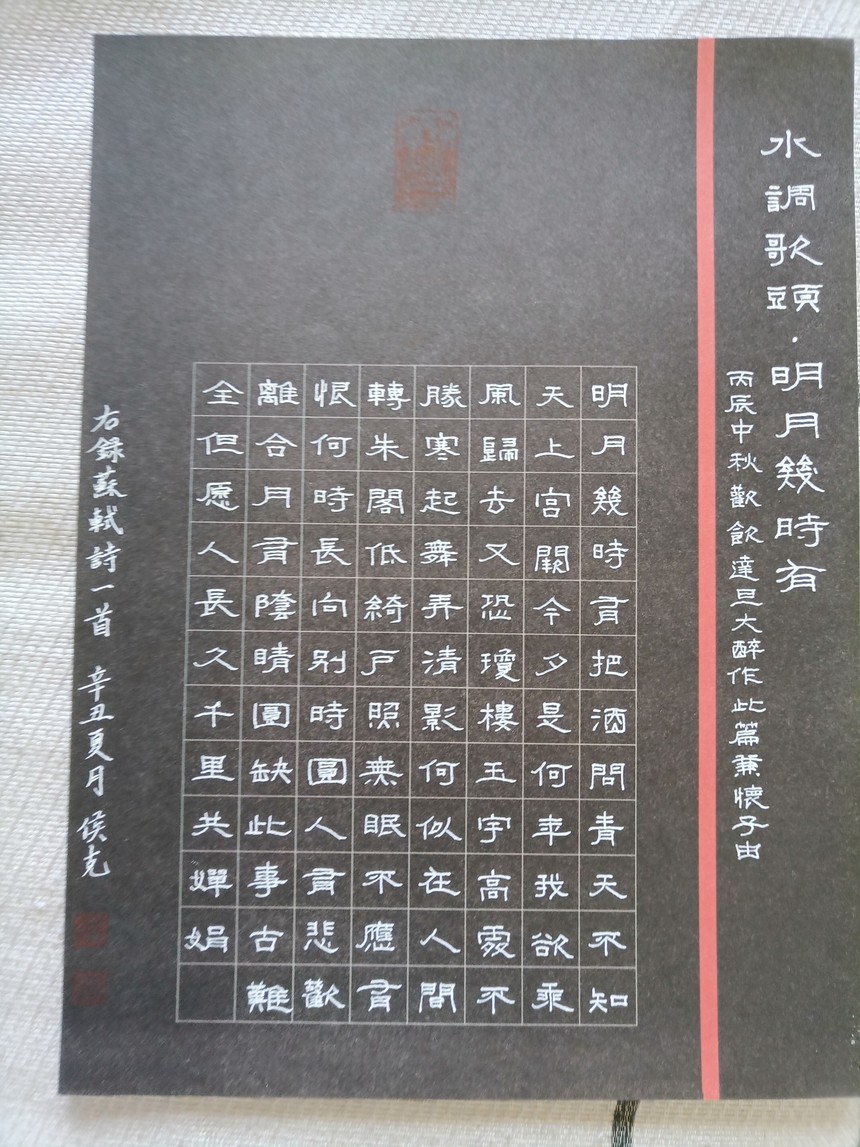 水調歌頭·明月幾時有
丙辰中秋歡飲達旦大醉作此篇兼懷子由
明月幾時有把酒問青天不知
天上宮闕今夕是何年我欲乘
風歸去又恐瓊樓玉宇高處不
勝寒起舞弄清影何似在人間
轉朱閣低綺戶照無眠不應有
恨何時長向別時圓人有悲歡
離合月有陰晴圓缺此事古難
全但愿人長久千里共嬋娟
右錄蘇軾詩一首 辛丑夏月 侯克